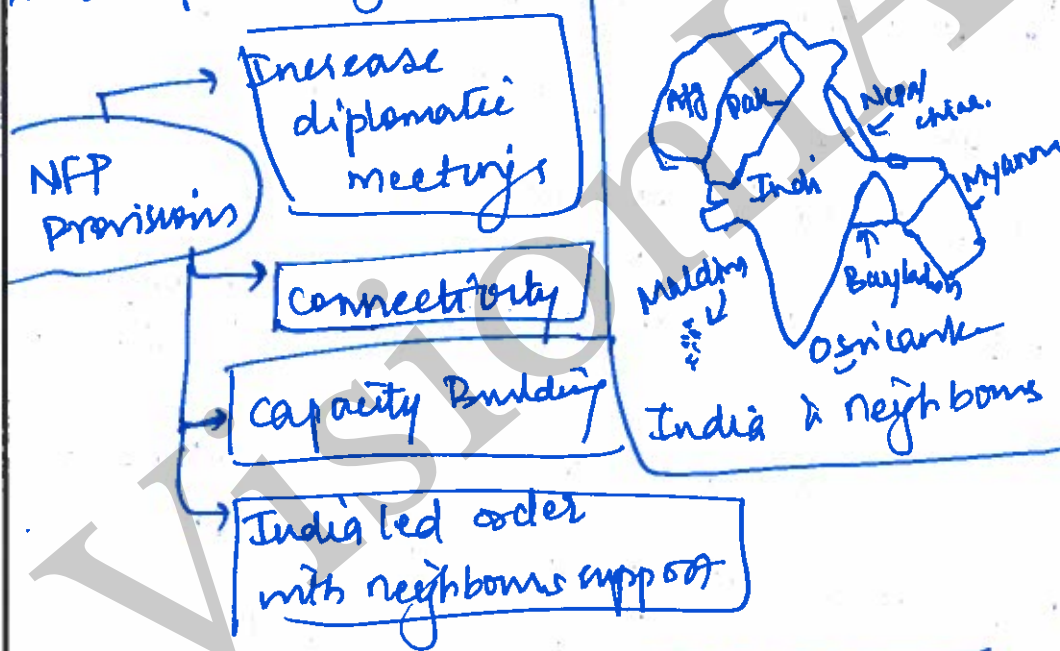 NFP
provisions
Increase
diplomatic
meetings
connectivity
capacity Building
India led order
with neighbours support
Afg
Pak
Nepal
china.
Indi
Myanm
Maldives
Bangladesh
Srilanka
India & neighbours
VisionIA